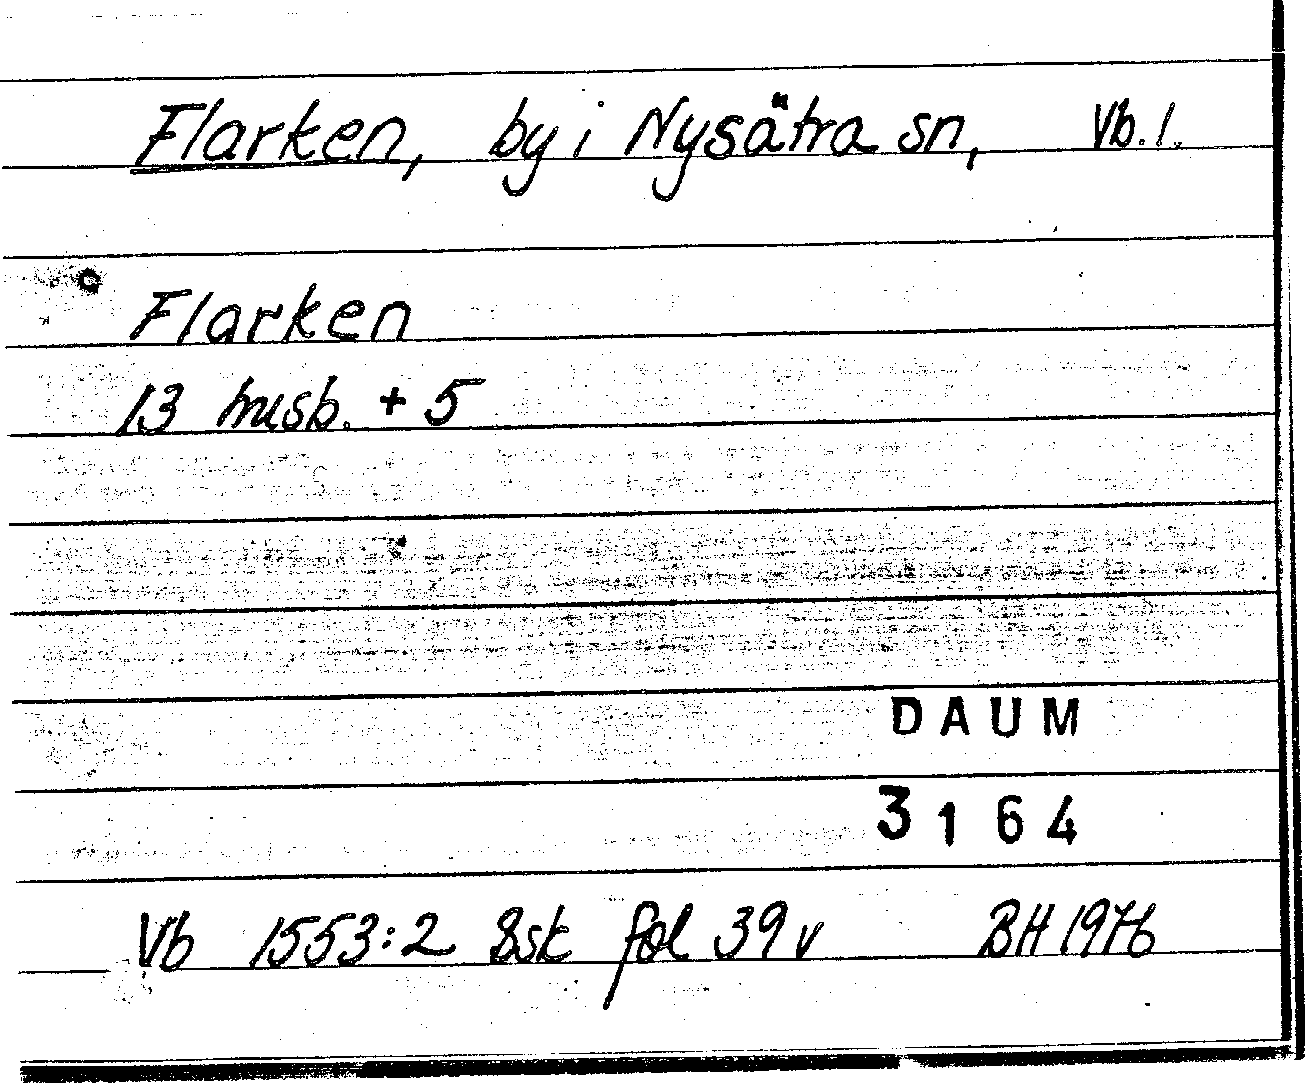 Flarken, by i Nysätra sn, Vb. l.
Flarken
13 husb. + 5
DAUM
3164
Vb 1553:2 Ssk fol 39 v BH 1976